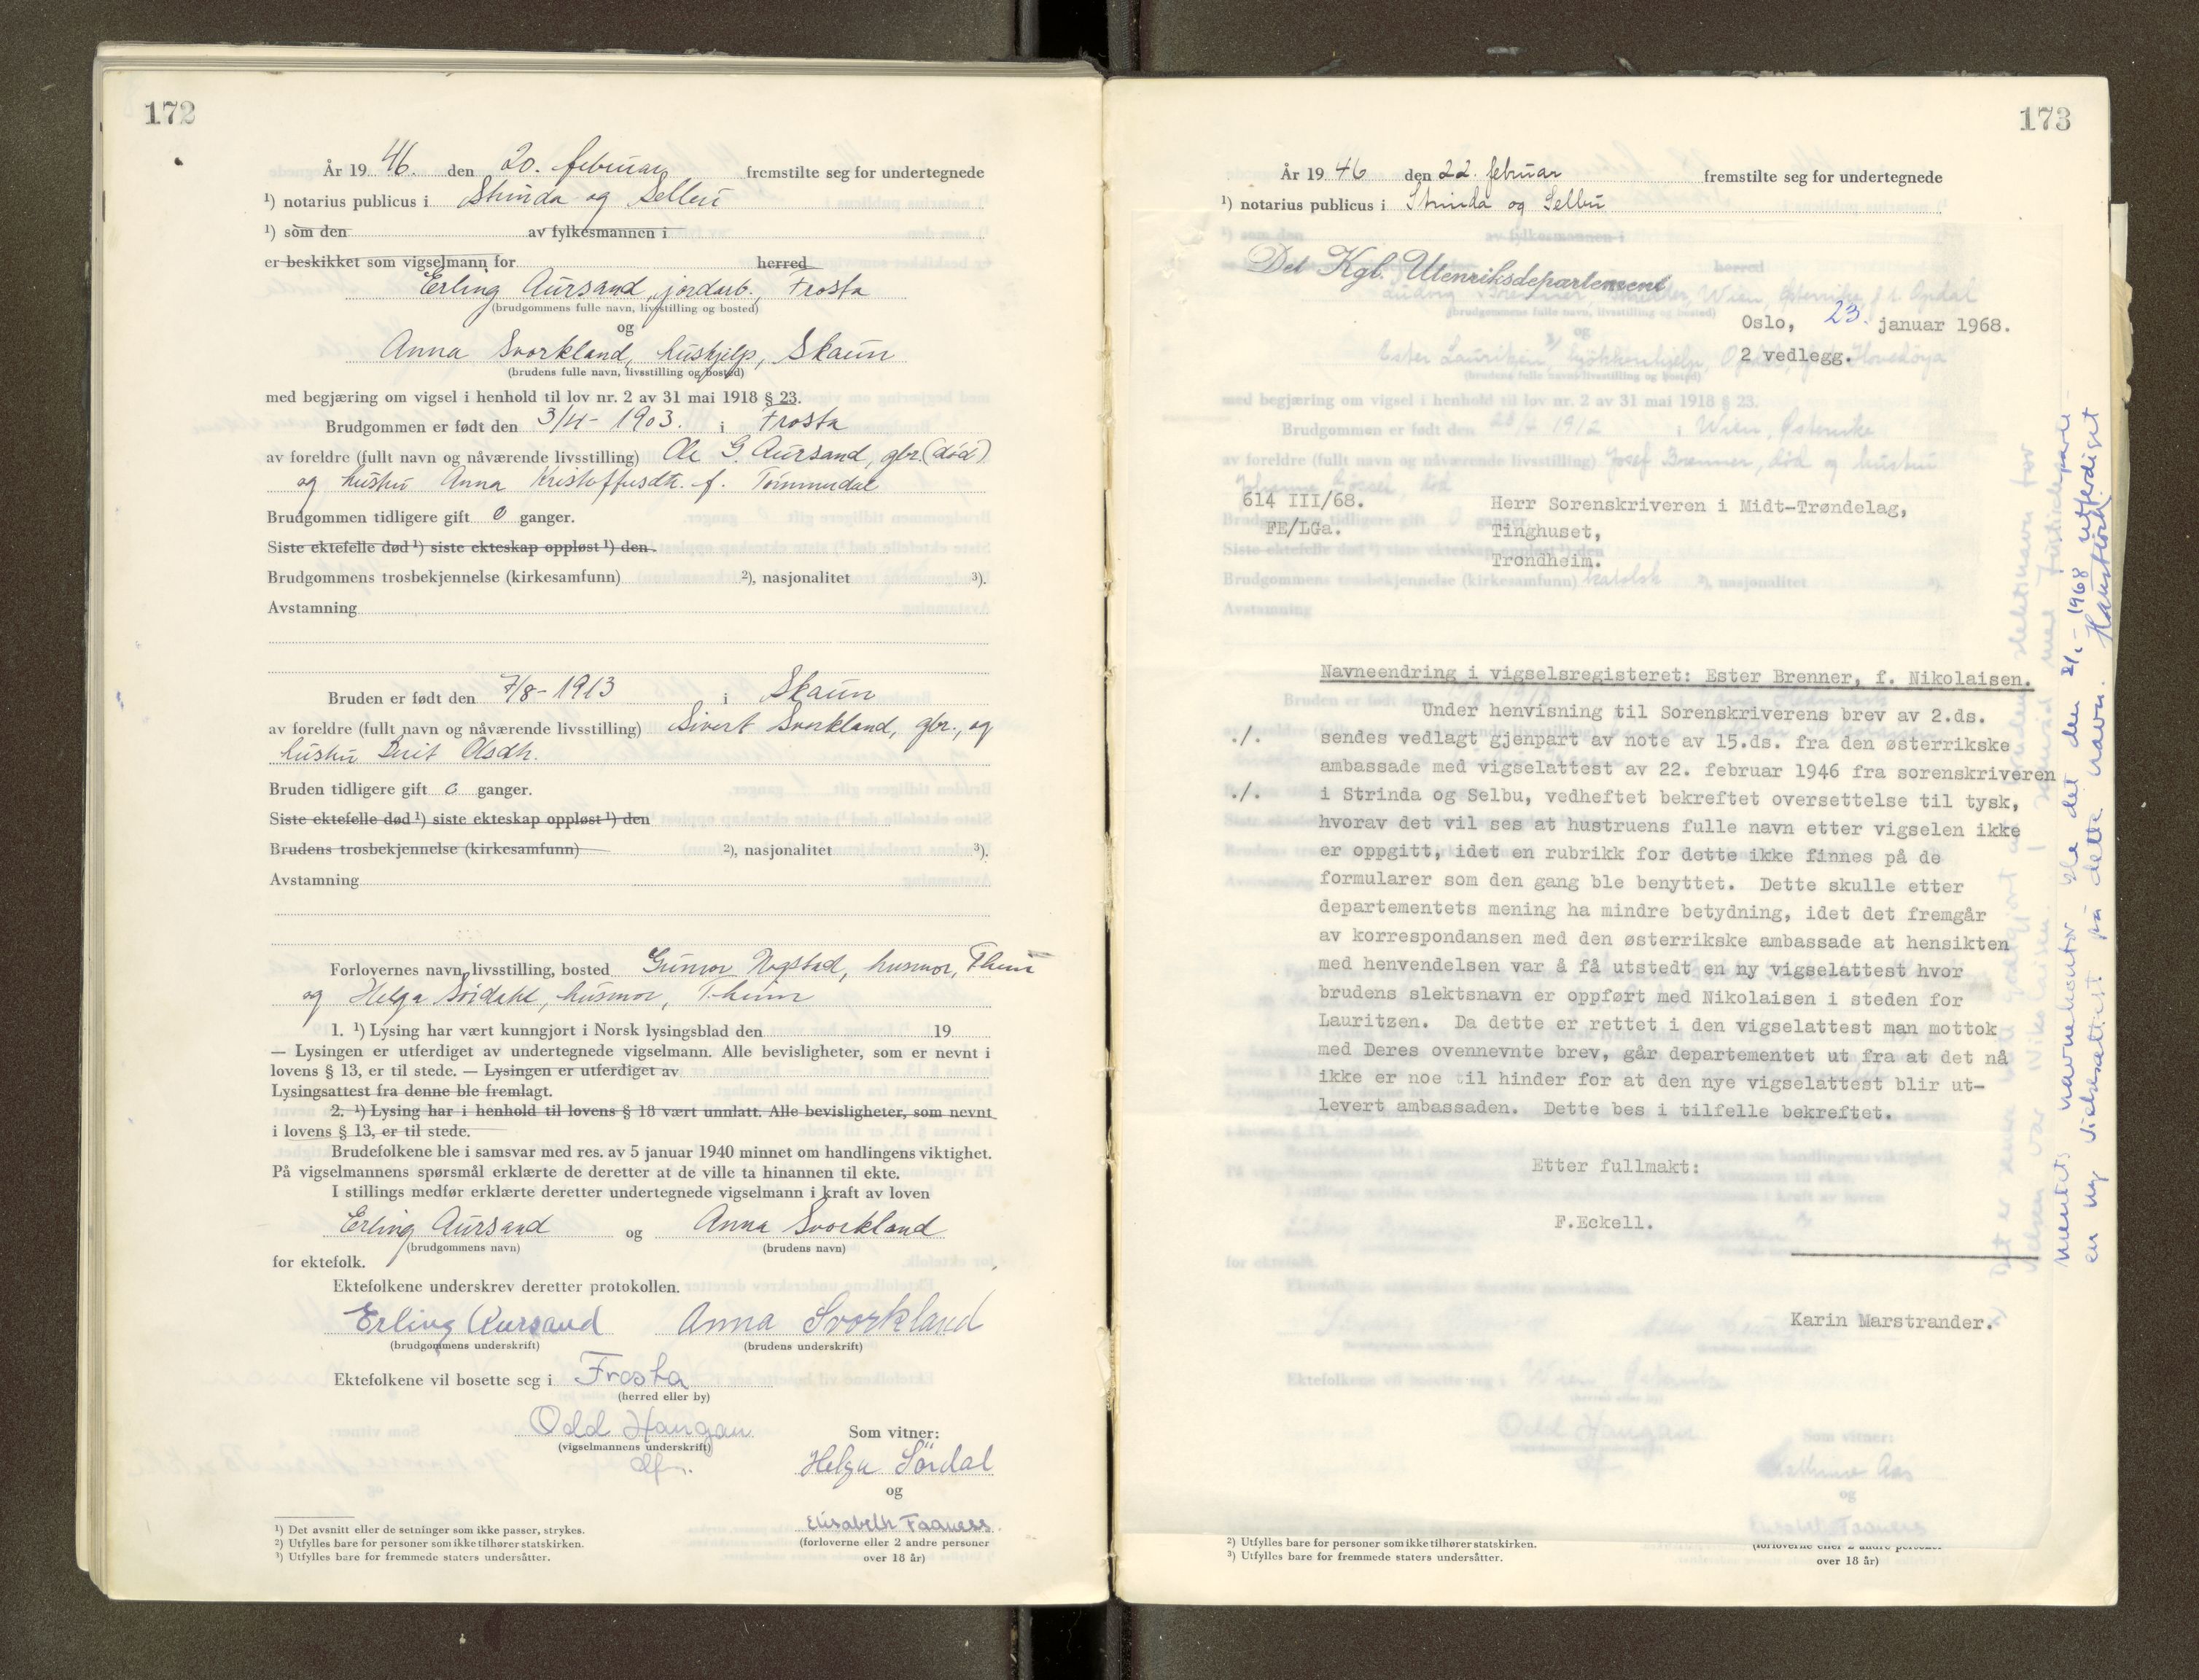 172
År 19 46. den 20. februar fremstilte seg for undertegnede
¹) notarius publicus i Strinda og Selbu
¹) som den av fylkesmannen i
er beskikket som vigselmann for herred
Erling Aursand, jordarb., Frosta
(brudgommens fulle navn, livsstilling og bosted)
og
Anna Svorkland, hushjelp, Skaun
(brudens fulle navn, livsstilling og bosted)
med begjæring om vigsel i henhold til lov nr. 2 av 31 mai 1918 § 23.
Brudgommen er født den 3/4- 1903. i Frosta
av foreldre (fullt navn og nåværende livsstilling) Ole G. Aursand, gbr. (død)
og hustru Anna Kristoffersdtr. f.
Brudgommen tidligere gift 0 ganger.
Siste ektefelle død ¹) siste ekteskap oppløst ¹) den
Brudgommens trosbekjennelse (kirkesamfunn) ²), nasjonalitet ³).
Avstamning
Bruden er født den 7/8- 1913 i Skaun
av foreldre (fullt navn og nåværende livsstilling) Sivert Svorkland, gbr., og
hustru Berit Olsdtr.
Bruden tidligere gift 0 ganger.
Siste ektefelle død ¹) siste ekteskap oppløst ¹) den
Brudens trosbekjennelse (kirkesamfunn) ²), nasjonalitet ³).
Avstamning
Forlovernes navn, livsstilling, bosted Gunvor Hogstad, husmor, T.heim
og Helga Sørdahl, husmor, T.heim
1. ¹) Lysing har vært kunngjort i Norsk lysingsblad den 19
— Lysingen er utferdiget av undertegnede vigselmann. Alle bevisligheter, som er nevnt i
lovens § 13, er til stede. — Lysingen er utferdiget av
Lysingsattest fra denne ble fremlagt.
2. ¹) Lysing har i henhold til lovens § 18 vært unnlatt. Alle bevisligheter, som nevnt
i lovens § 13, er til stede.
Brudefolkene ble i samsvar med res. av 5 januar 1940 minnet om handlingens viktighet.
På vigselmannens spørsmål erklærte de deretter at de ville ta hinannen til ekte.
I stillings medfør erklærte deretter undertegnede vigselmann i kraft av loven
Erling Aursand og Anna Svorkland
(brudgommens navn) (brudens navn)
for ektefolk.
Ektefolkene underskrev deretter protokollen.
Erling Aursand Anna Svorkland
(brudgommens underskrift) (brudens underskrift)
Ektefolkene vil bosette seg i Frosta
(herred eller by)
Odd Haugan
(vigselmannens underskrift)
df.
Som vitner:
Helga Sördal
og
Elisabeth Faaness
(forloverne eller 2 andre personer
over 18 år)
¹) Det avsnitt eller de setninger som ikke passer, strykes.
²) Utfylles bare for personer som ikke tilhører statskirken.
³) Utfylles bare for fremmede staters undersåtter.
173
År 19 46 den 22. februar fremstilte seg for undertegnede
¹) notarius publicus i Strinda og Selbu
Det Kgl. Utenriksdepartement
Oslo, 23. januar 1968.
2 vedlegg.
614 III/68.
FE/LGa.
Herr Sorenskriveren i Midt-Trøndelag,
Tinghuset,
Trondheim.
Navneendring i vigselsregisteret: Ester Brenner, f. Nikolaisen.
Under henvisning til Sorenskriverens brev av 2.ds.
./. sendes vedlagt gjenpart av note av 15.ds. fra den østerrikske
ambassade med vigselattest av 22. februar 1946 fra sorenskriveren
./. i Strinda og Selbu, vedheftet bekreftet oversettelse til tysk,
hvorav det vil ses at hustruens fulle navn etter vigselen ikke
er oppgitt, idet en rubrikk for dette ikke finnes på de
formularer som den gang ble benyttet. Dette skulle etter
departementets mening ha mindre betydning, idet det fremgår
av korrespondansen med den østerrikske ambassade at hensikten
med henvendelsen var å få utstedt en ny vigselattest hvor
brudens slektsnavn er oppført med Nikolaisen i steden for
Lauritzen. Da dette er rettet i den vigselattest man mottok
med Deres ovennevnte brev, går departementet ut fra at det nå
ikke er noe til hinder for at den nye vigselattest blir ut-
levert ambassaden. Dette bes i tilfelle bekreftet.
Etter fullmakt:
F.Eckell.
Karin Marstrander.
mentets navnekontor ble det den 2/1 - 1968 utferdiget
en ny vielsesattest på dette navn.
²) Utfylles bare for personer som ikke tilhører statskirken.
³) Utfylles bare for fremmede staters undersåtter.
(forloverne eller 2 andre personer
over 18 år)